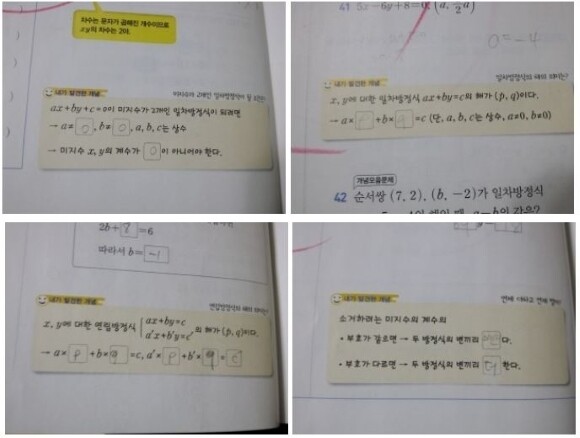 차수는 문자가 곱해진 개수이므로
xy의 차수는 2야.
내가 발견한 개념
미지수가 2개인 일차방정식이 될 조건은?
ax+by+c=0이 미지수가 2개인 일차방정식이 되려면
→ a≠ 0 , b≠ 0 , a, b, c는 상수
→ 미지수 x, y의 계수가 0 이 아니어야 한다.
41 5x-6y+8=0
0=-4
내가 발견한 개념
일차방정식의 해의 의미는?
x, y에 대한 일차방정식 ax+by=c의 해가 (p, q)이다.
→ a× p +b× q =c (단, a, b, c는 상수, a≠0, b≠0)
개념모음문제
42 순서쌍 (7, 2), (b, -2)가 일차방정식
2b+ 8 =6
따라서 b= -1
내가 발견한 개념
연립방정식의 해의 의미는?
x, y에 대한 연립방정식 ax+by=c
a'x+b'y=c' 의 해가 (p, q)이다.
→ a× p +b× q =c, a'× p +b'× q = c'
내가 발견한 개념
소거하려는 미지수의 계수의
• 부호가 같으면 → 두 방정식의 변끼리 뺀 다.
• 부호가 다르면 → 두 방정식의 변끼리 더 한다.